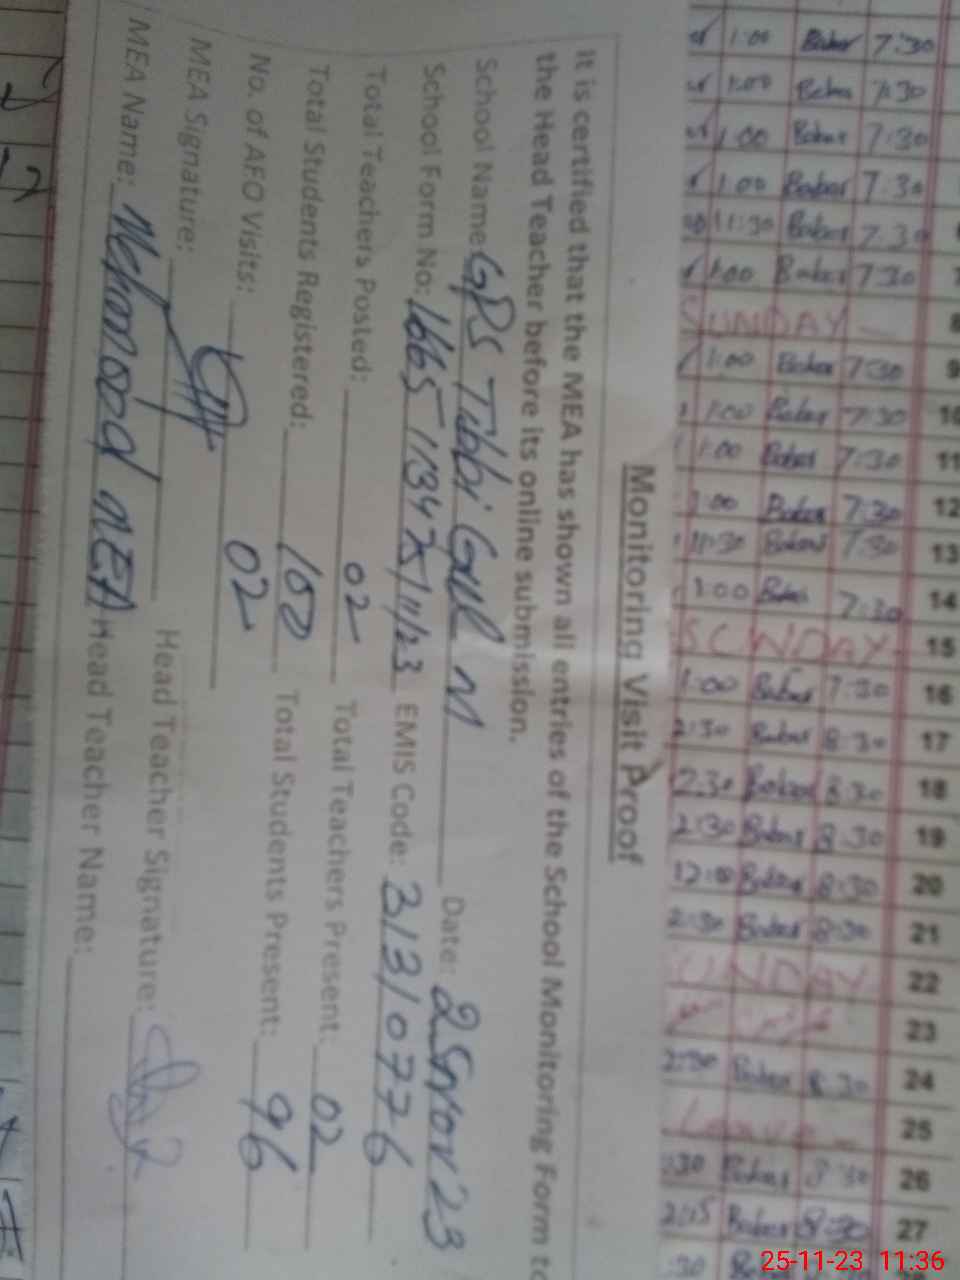 Monitoring Visit Proof
It is certified that the MEA has shown all entries of the School Monitoring Form to
the Head Teacher before its online submission.
School Name: GPS Tibbi Gul M Date: 25 Nov 23
School Form No: 1665 1134 25/11/23 EMIS Code: 31310776
Total Teachers Posted: 02 Total Teachers Present: 02
Total Students Registered: 100 Total Students Present: 96
No. of AEO Visits: 02
MEA Signature: Head Teacher Signature:
MEA Name: Mehmood MEA Head Teacher Name:
1:00 Babar 7:30
1:00 Babar 7:30
1:00 Babar 7:30
1:00 Babar 7:30
11:30 Babar 7:30
1:00 Babar 7:30
SUNDAY 8
1:00 Babar 7:30 9
1:00 Babar 7:30 10
1:00 Babar 7:30 11
1:00 Babar 7:30 12
11:30 Babar 7:30 13
1:00 Babar 7:30 14
SUNDAY 15
1:00 Babar 7:30 16
2:30 Babar 8:30 17
2:30 Babar 8:30 18
2:30 Babar 8:30 19
12:00 Babar 8:30 20
2:30 Babar 8:30 21
SUNDAY 22
23
2:30 Babar 8:30 24
Leave 25
:30 Babar 8:30 26
2:15 Babar 8:30 27
:30
25-11-23 11:36